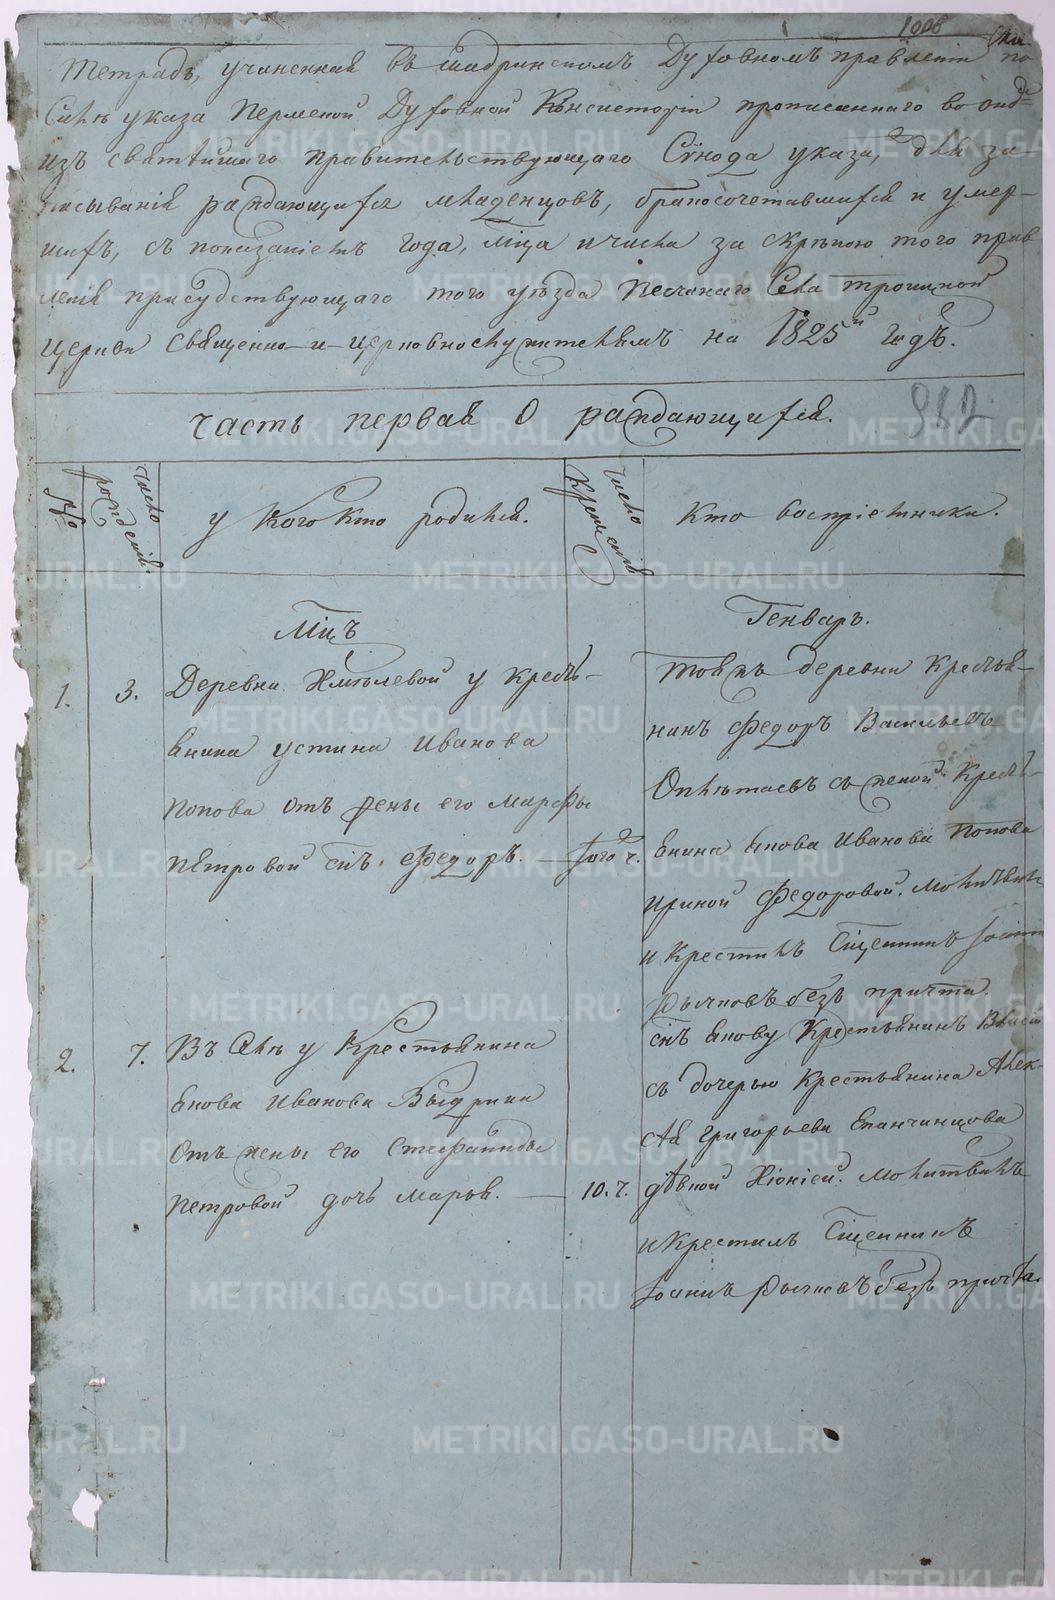 1006
Тетрадь, учиненная въ Шадринскомъ Духовномъ правленіи по
Силѣ указа Пермской Духовной Консисторіи прописаннаго во оной
изъ святѣйшаго правительствующаго Сѵнода указа, для за
писыванія раждающихся младенцовъ, бракосочетавшихся и умер-
шихъ, съ показаніемъ года, мца и числа за скрѣпою того прав
ленія присудствующаго того уѣзда Песчанаго Села троицкой
церкви священно-и-церковнослужителямъ на 1825й годъ.
982
часть первая О раждающихся.
число рожденія
у Кого Кто родился.
число Крещенія
Кто воспріемники.
Мцъ
Генварь.
1. 3. Деревни Хмѣлевой у Кресть-
янина устина Иванова
Попова отъ жены его Марфы
Петровой снъ Федоръ. — того ч.
Тояжъ деревни Кресьтя-
нинъ Федоръ Васильевъ
съ женой Кресть-
янина Якова Иванова Попова
Ириной Федоровой. Молитвилъ
и Крестилъ Сщенникъ Іоаннъ
Рычковъ безъ причта.
2. 7. Въ Селѣ у Крестьянина
Якова Иванова Выдрина
отъ жены его Стефаниды
Петровой дочь Марья. — 10. ч.
снъ Якову Крестьянинъ
съ дочерью Крестьянина Алек-
сѣя Григорьева Епанчинцова
дѣвкой Хіоніей. Молитвилъ
и Крестилъ Сщенникъ
Іоаннъ Рычковъ безъ причта.
METRIKI.GASO-URAL.RU